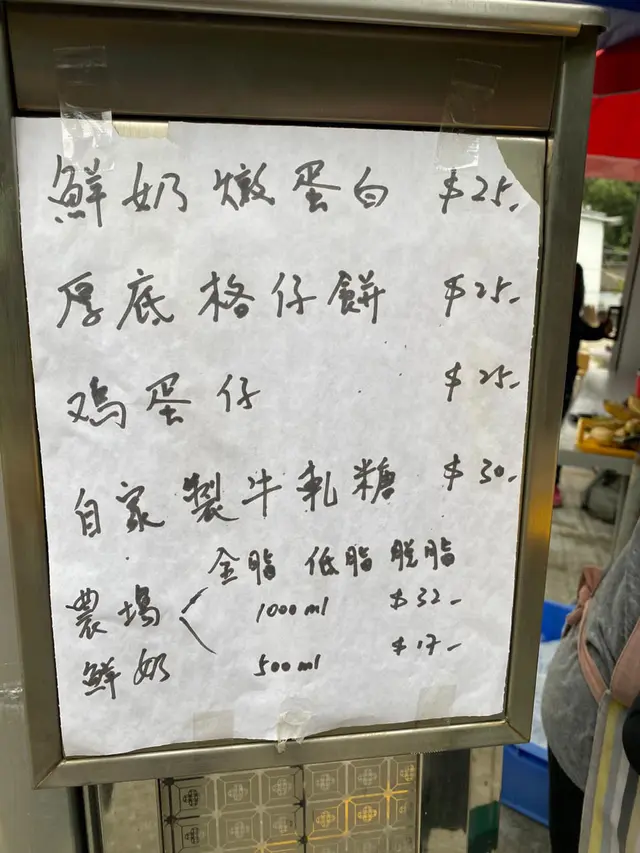 鮮奶燉蛋白 $25.
厚底格仔餅 $25.
鸡蛋仔 $25.
自家製牛軋糖 $30.
全脂 低脂 脱脂
農場 1000ml $32.
鮮奶 500ml $17.